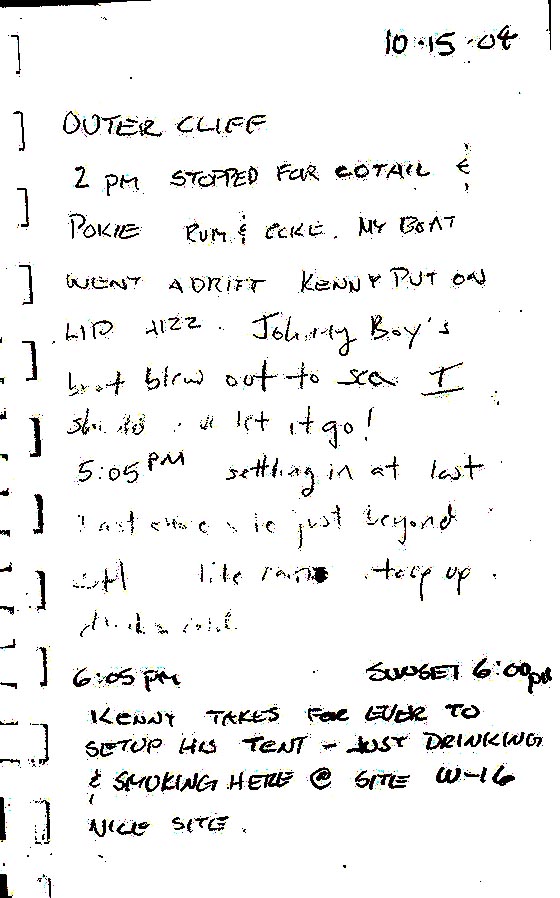 10·15·04
OUTER CLIFF
2 PM STOPPED FOR COTAIL &
POKIE RUM & COKE. MY BOAT
WENT ADRIFT KENNY PUT ON
LID
Johnny Boy's
boat blew out to sea I
let it go!
5:05 PM settling in at last
just beyond
lite rain up.
6:05 PM SUNSET 6:00pm
KENNY TAKES FOR EVER TO
SETUP HIS TENT - JUST DRINKING
& SMOKING HERE @ SITE W-16
NICE SITE.